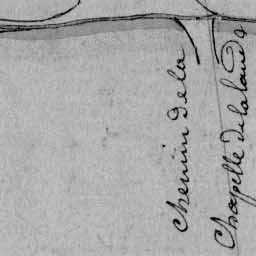 chemin de la
Chapelle de la lande